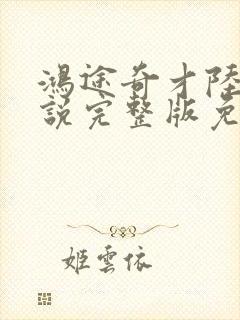 鴻途奇才陸
說完整版免
姬雲依